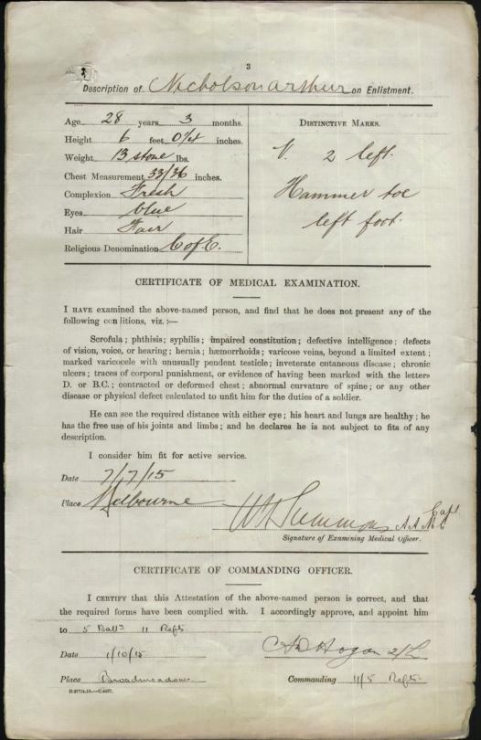 3
Description of Nicholson Arthur on Enlistment.
Age 28 years 3 months.
Height 6 feet 0¼ inches.
Weight 13 stone lbs.
Chest Measurement 33/36 inches.
Complexion Fresh
Eyes blue
Hair Fair
Religious Denomination C of E.
DISTINCTIVE MARKS.
V. 2 left.
Hammer toe
left foot.
CERTIFICATE OF MEDICAL EXAMINATION.
I HAVE examined the above-named person, and find that he does not present any of the
following conditions, viz.:—
Scrofula; phthisis; syphilis; impaired constitution; defective intelligence; defects
of vision, voice, or hearing; hernia; hæmorrhoids; varicose veins, beyond a limited extent;
marked varicocele with unusually pendent testicle; inveterate cutaneous disease; chronic
ulcers; traces of corporal punishment, or evidence of having been marked with the letters
D. or B.C.; contracted or deformed chest; abnormal curvature of spine; or any other
disease or physical defect calculated to unfit him for the duties of a soldier.
He can see the required distance with either eye; his heart and lungs are healthy; he
has the free use of his joints and limbs; and he declares he is not subject to fits of any
description.
I consider him fit for active service.
Date 7/7/15
Place Melbourne
W H Summons Capt
A.A.M.C
Signature of Examining Medical Officer.
CERTIFICATE OF COMMANDING OFFICER.
I CERTIFY that this Attestation of the above-named person is correct, and that
the required forms have been complied with. I accordingly approve, and appoint him
to 5 Battn 11 Refts
Date 1/10/15
Hogan 2/L
Place Broadmeadows
Commanding 11/5 Refts